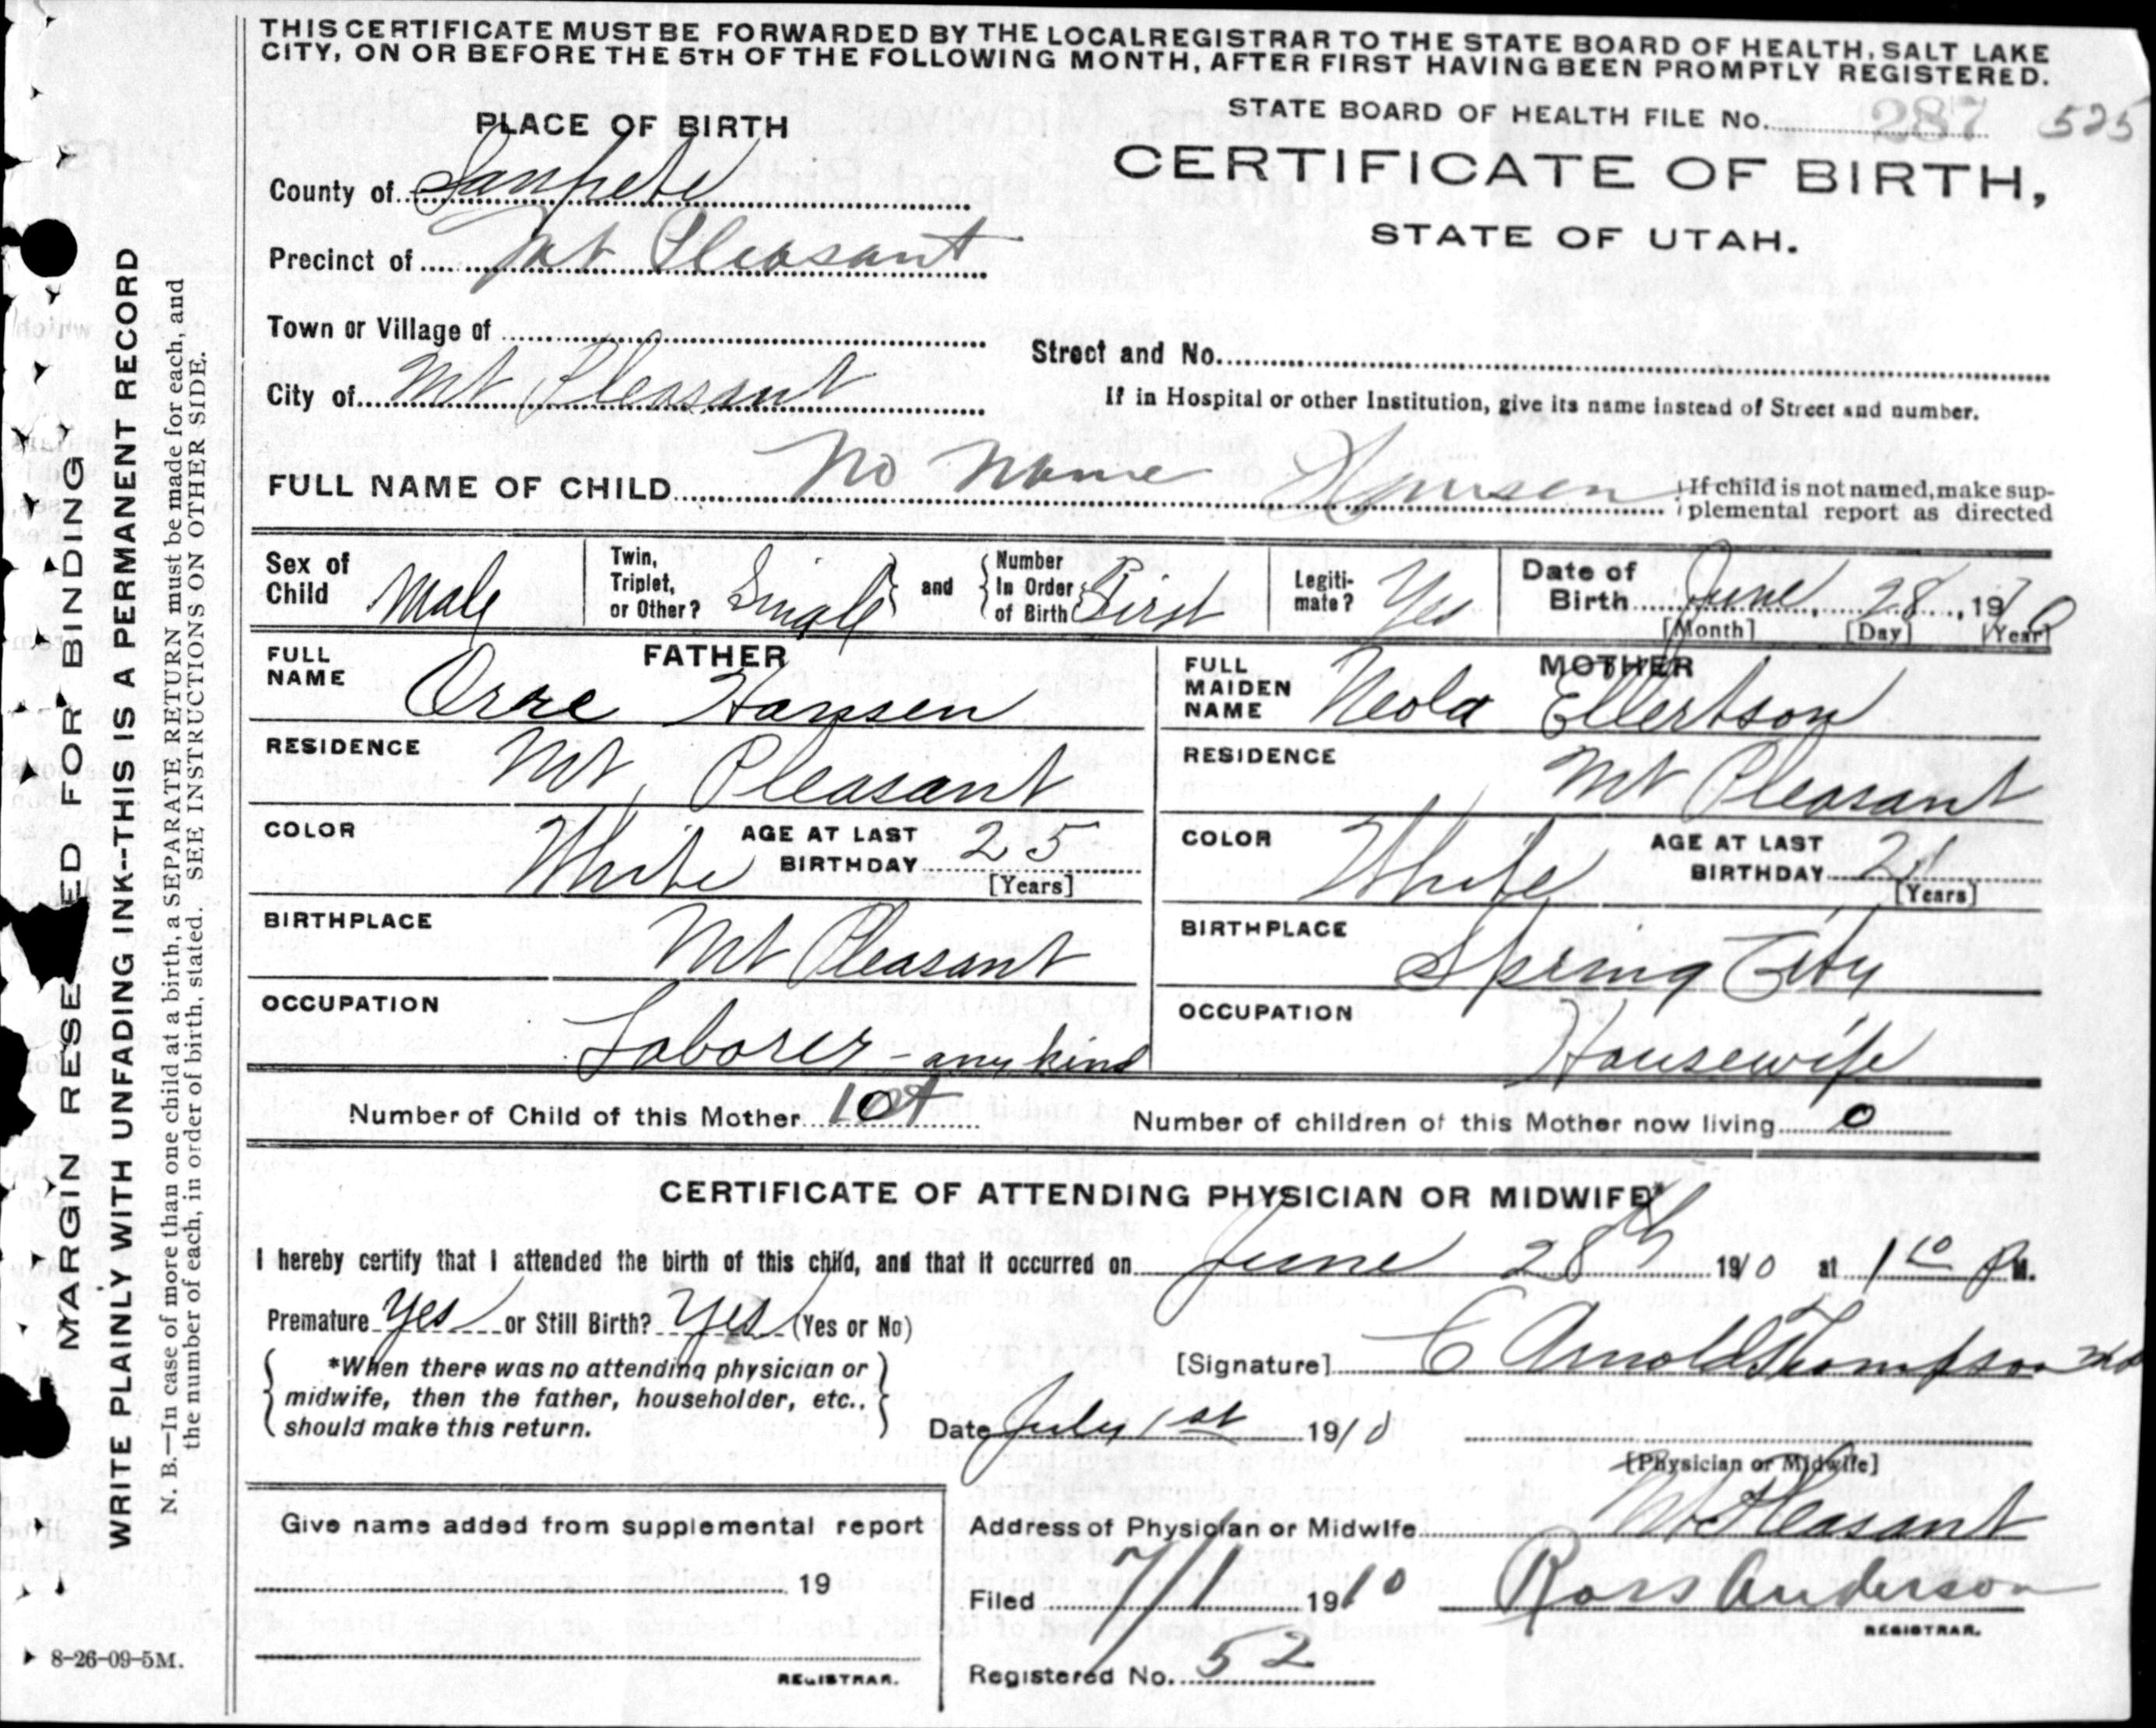 THIS CERTIFICATE MUST BE FORWARDED BY THE LOCAL REGISTRAR TO THE STATE BOARD OF HEALTH, SALT LAKE
CITY, ON OR BEFORE THE 5TH OF THE FOLLOWING MONTH, AFTER FIRST HAVING BEEN PROMPTLY REGISTERED.
STATE BOARD OF HEALTH FILE No. 287 525
PLACE OF BIRTH
CERTIFICATE OF BIRTH,
STATE OF UTAH.
County of Sanpete
Precinct of Mt Pleasant
Town or Village of
Street and No.
City of Mt Pleasant
If in Hospital or other Institution, give its name instead of Street and number.
FULL NAME OF CHILD No Name Hansen
If child is not named, make sup-
plemental report as directed
Sex of Child Male
Twin, Triplet, or Other? Single and Number In Order of Birth First
Legiti-mate? Yes
Date of Birth June 28, 1910
[Month] [Day] [Year]
FATHER
FULL NAME Orae Hansen
RESIDENCE Mt Pleasant
COLOR White AGE AT LAST BIRTHDAY 25
[Years]
BIRTHPLACE Mt Pleasant
OCCUPATION
Laborer - any kind
MOTHER
FULL MAIDEN NAME Neola Ellertson
RESIDENCE Mt Pleasant
COLOR White AGE AT LAST BIRTHDAY 21
[Years]
BIRTHPLACE Spring City
OCCUPATION
Housewife
Number of Child of this Mother 1st Number of children of this Mother now living 0
CERTIFICATE OF ATTENDING PHYSICIAN OR MIDWIFE*
I hereby certify that I attended the birth of this child, and that it occurred on June 28th 1910 at 1 10 P M.
Premature Yes or Still Birth? Yes (Yes or No)
*When there was no attending physician or
midwife, then the father, householder, etc.,
should make this return.
[Signature] C Arnold Thompson MD
Date July 1st 1910
[Physician or Midwife]
Give name added from supplemental report
19
REGISTRAR.
Address of Physician or Midwife Mt Pleasant
Filed 7/1 1910 Ross Anderson
REGISTRAR.
Registered No. 52
MARGIN RESE ED FOR BINDING
WRITE PLAINLY WITH UNFADING INK--THIS IS A PERMANENT RECORD
N. B.—In case of more than one child at a birth, a SEPARATE RETURN must be made for each, and
the number of each, in order of birth, stated. SEE INSTRUCTIONS ON OTHER SIDE.
8-26-09-5M.